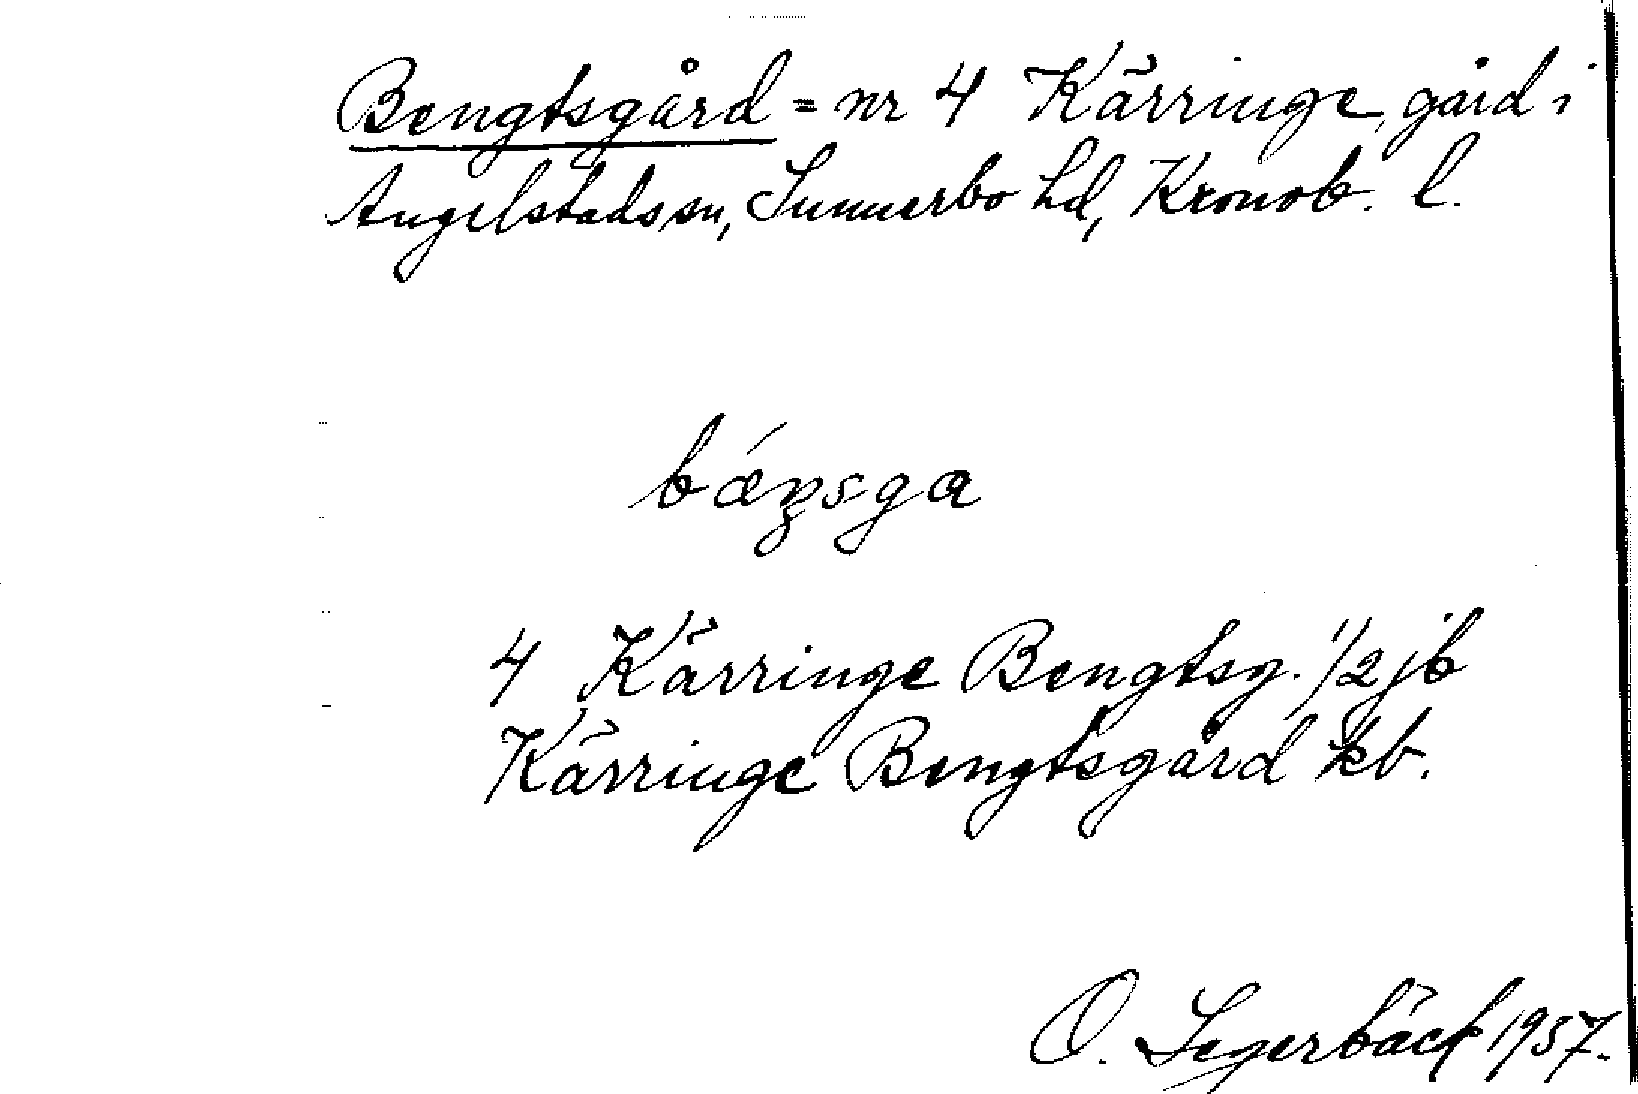 Bengtsgård = nr 4 Kärringe, gård i
Angelstads sn, Sunnerbo hd, Kronob. l.
bǽŋsga
4 Kärringe Bengtsg. 1/2 jb
Kärringe Bengtsgård kb.
O. Segerbäck 1957.